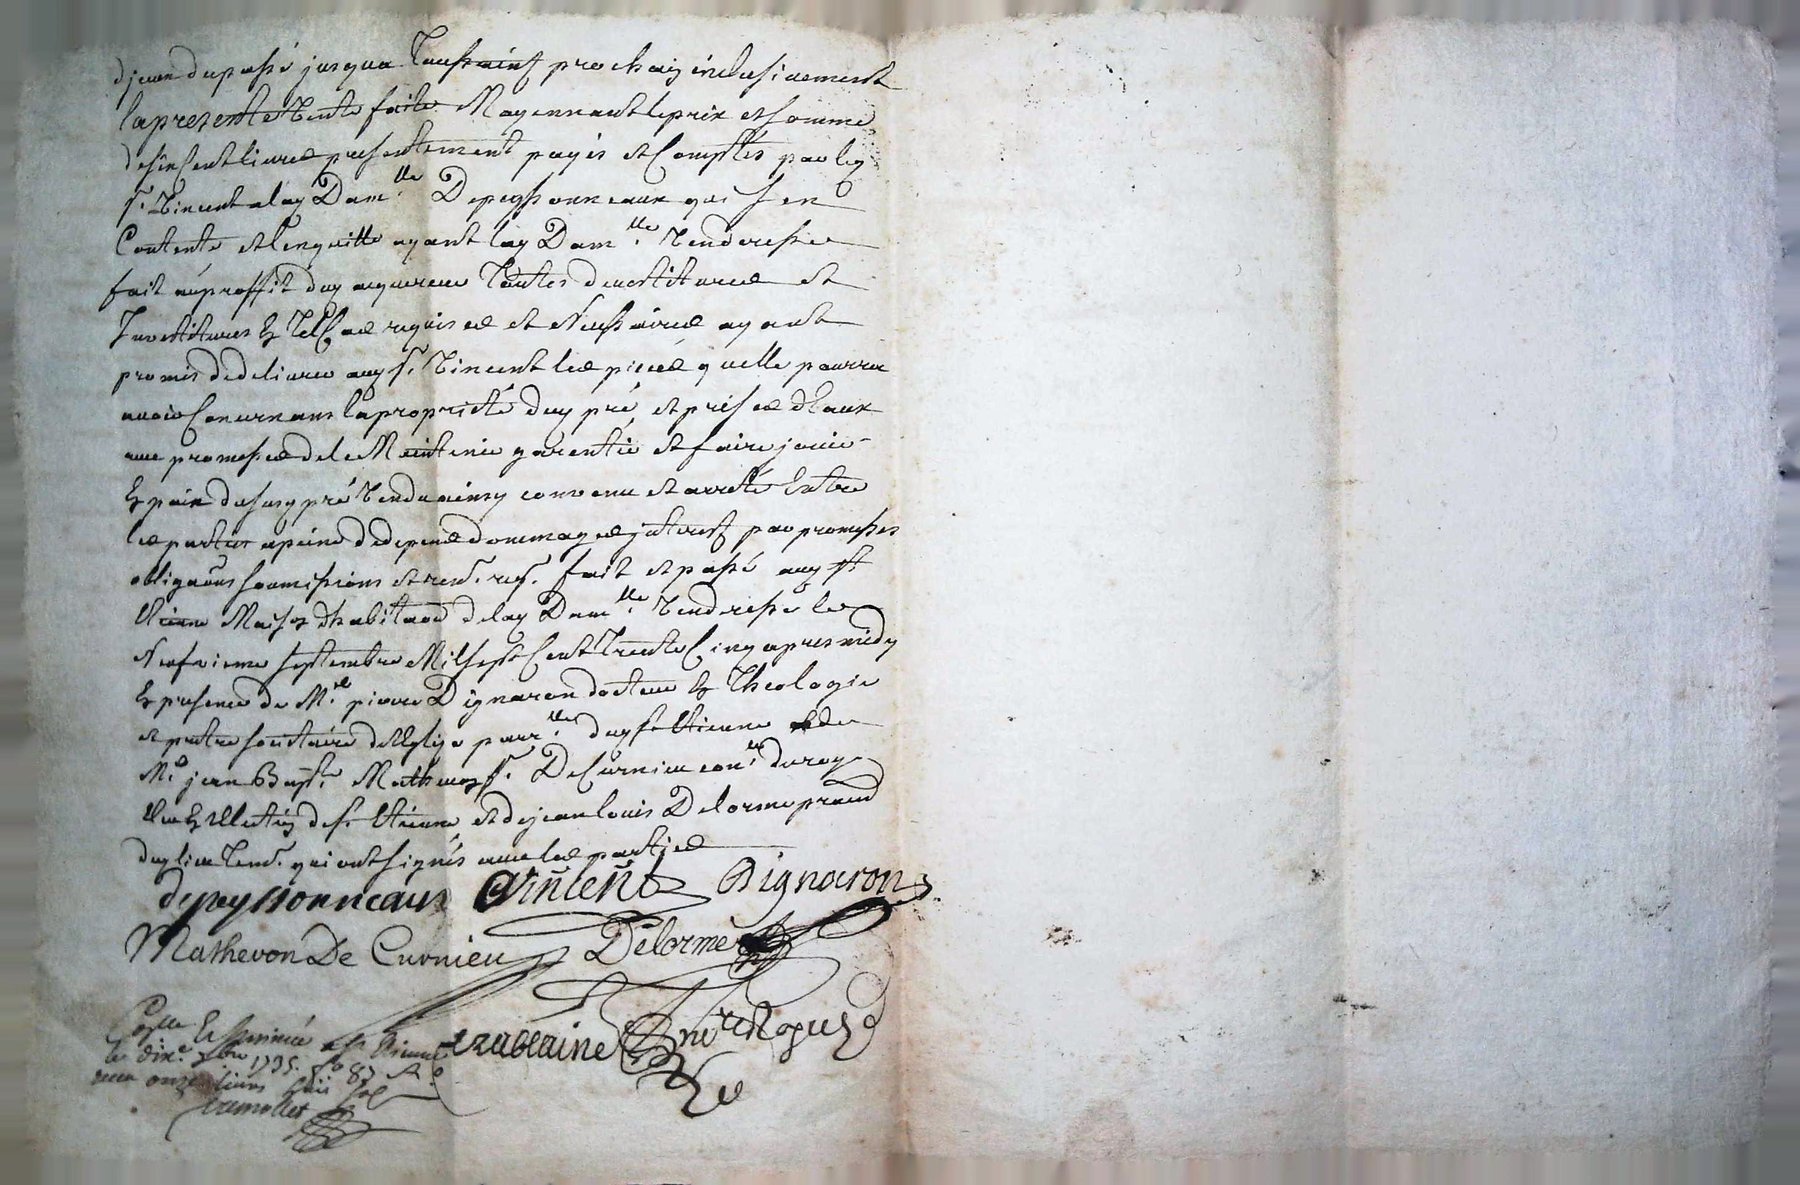 d'jean du passé jusqua Toussaint prochain inclusivement
la presente vente faite Moyennant le prix et somme
de six Cent livres presentement payés et Comptés par led
sr. Vincent a lad Dam.lle Depeyssonneaux qui s'en
Contente et l'en quitte ayant lad Dam.lle venderesse
fait au proffit dud acquereur Toutes devestitures et
Investitures En Tel Cas requises et Necessaires ayant
promis de delivrer aud sr. Vincent les pieces quelle pourra
avoir Concernans la propriété dud pré et prises d'Eaux
avec promesses de le Maintenir garentir et faire jouir
En paix dususd pré vendu ainsy convenu et arreté Entre
les parties a peine de depens dommages jnterest par promesses
obligaôns soumissions et ren. req. fait et passé aud st
Etienne Maison d'habitaôn de lad Dam.lle venderesse le
Neufvieme septembre Mil sept Cent Trente Cinq apres midy
En presence de M.re pierre Dignaron docteur En Theologie
et pretre societaire de l'Eglise parr.lle dud st Etienne et de
M.e jean Bapt.e Mathevon sr. De Curnieu con.er du roy
Elu En l'Election de st Etienne et de jean louis Delorme pratid
dud lieu Tem.s qui ont signés avec les parties
depeyssonneaux Vincent Dignaron
Mathevon De Curnieu Delorme
Con.lle Et Insinué a St Etienne
le dix.e 7bre 1735. fo 87 et R.
onze livres huit sol
tremollet
trablaine no.re Royal